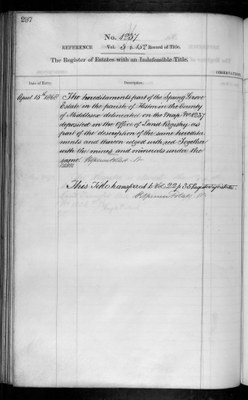 297
No. 1257
REFERENCE Vol. 5 p. 152 Record of Title.
The Register of Estates with an Indefeasible Title.
Date of Entry. Description. OBSERVATIONS
April 15th 1868 The hereditaments part of the Spring Grove
Estate in the parish of Heston in the County
of Middlesex delineated on the map No. 1257
deposited in the Office of Land Registry as
part of the description of the same heredita-
ments and thereon edged with red Together
with the mines and minerals under the
same
This Title transferred to Vol. 22 p. 35